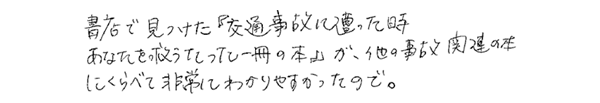 書店で見つけた『交通事故に遭った時
あなたを救うたった一冊の本』が、他の事故関連の本
にくらべて非常にわかりやすかったので。